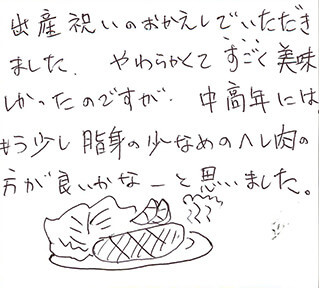 出産祝いのおかえしでいただき
ました. やわらかくてすごく美味
しかったのですが. 中高年には
もう少し脂身の少なめのヘレ肉の
方が良いかなーと思いました。